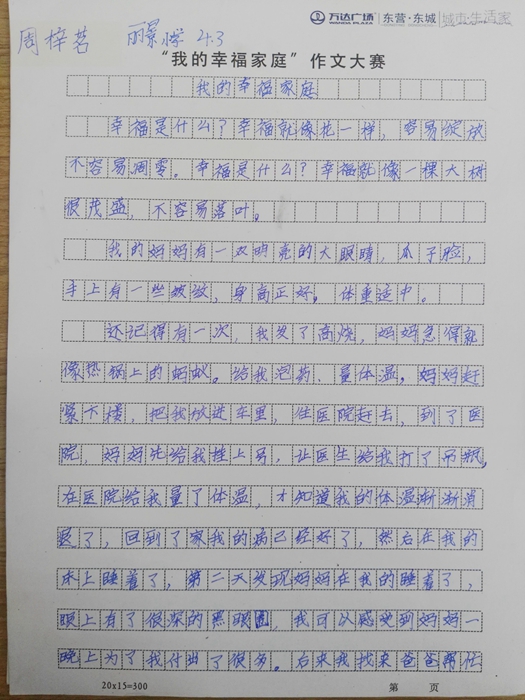 万达广场 WANDA PLAZA 东营·东城 城市·生活家
周梓茗 丽景小学 4.3
“我的幸福家庭”作文大赛
我的幸福家庭
幸福是什么?幸福就像花一样,容易绽放
不容易凋零。幸福是什么?幸福就像一棵大树
很茂盛,不容易落叶。
我的妈妈有一双明亮的大眼睛,瓜子脸,
手上有一些皱纹,身高正好。体重适中。
还记得有一次,我发了高烧,妈妈急得就
像热锅上的蚂蚁。给我泡药、量体温。妈妈赶
紧下楼,把我放进车里,往医院赶去,到了医
院,妈妈先给我挂上号,让医生给我打了吊瓶,
在医院给我量了体温,才知道我的体温渐渐消
退了,回到了家我的病已经好了,然后在我的
床上睡着了,第二天发现妈妈在我的睡着了,
眼上有了很深的黑眼圈,我可以感觉到妈妈一
晚上为了我付出了很多。后来我找来爸爸帮忙
20x15=300 第 页